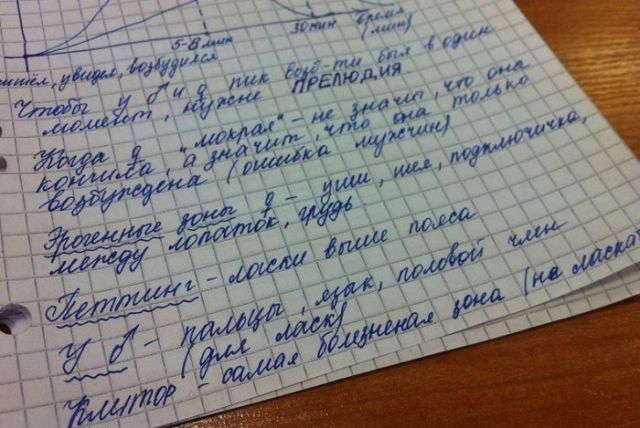 5-8 мин 30 мин время
(мин)
пришёл, увидел, возбудился
Чтобы у ♂ и ♀ пик возб-ти был в один
момент, нужне ПРЕЛЮДИЯ.
Когда ♀ "мокрая" - не значи, что она
кончила, а значит, что она только
возбуждена (ошибка мужчин)
Эрогенные зоны ♀ - уши, шея, подключичка,
между лопаток, грудь.
Петтинг - ласки выше пояса
У ♂ - пальцы, язык, половой член
(для ласк)
Клитор - самая болезненая зона (на ласкат